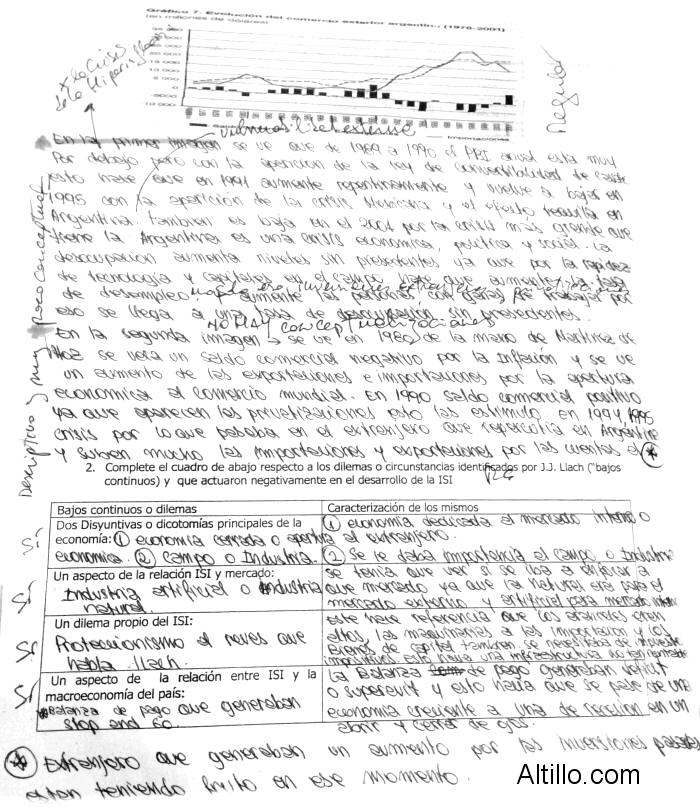 Gráfico 7. Evolución del comercio exterior argentino (1976-2001)
(en millones de dólares)
Importaciones
Regular
* la crisis de la Hiperinflación
En la primer imagen se ve que de 1989 a 1990 el PBI anual esta muy
Por debajo pero con la aparicion de la ley de convertibilidad de
esto hace que en 1991 aumente repentinamente y vuelve a bajar en
1995 con la aparicion de la crisis Mexicana y el efecto tequila en
Argentina. tambien es baja en el 2001 por la crisis más grande que
tiene la Argentina es una crisis economica, politica y social. La
desocupacion aumenta niveles sin precedentes ya que por la rapidez
de tecnologia y capitales en el campo hace que aumente la tasa
de desempleo. aumente las personas con ganas de trabajar por
eso se llega a una tasa de desocupacion sin precedentes.
NO HAY conceptualizaciones
En la segunda imagen se ve en 1980 de la mano de Martinez de
Hoz se nota un saldo comercial negativo por la Inflación y se ve
un aumento de las exportaciones e importaciones por la apertura
economica al comercio mundial. en 1990 saldo comercial positivo
ya que aparecen las privatizaciones esto las estimulo. en 1994 1995
crisis por lo que pasaba en el extranjero que repercutia en Argentina
y suben mucho las importaciones y exportaciones por las cuentas al *
Descriptivo y muy poco conceptual
2. Complete el cuadro de abajo respecto a los dilemas o circunstancias identificados por J.J. Llach ("bajos
continuos) y que actuaron negativamente en el desarrollo de la ISI
Bajos continuos o dilemas
Caracterización de los mismos
Dos Disyuntivas o dicotomías principales de la
economía: ① economia cerrada o apertura al extranjero.
economica. ② Campo o Industria.
① economia dedicada al mercado interno o
② Se le daba importancia al campo o Industria
Sí
Un aspecto de la relación ISI y mercado:
Industria artificial o industria
natural.
se tenia que ver si se iba a enfocar a
que mercado ya que la natural era para el
mercado externo y artificial para mercado interno
Sí
Un dilema propio del ISI:
Proteccionismo al reves que
habla Llach.
este hace referencia que los aranceles eran
altos, las maquinarias a las importacion y los
bienes de capital tambien, se necesitaba de
Sí
Un aspecto de la relación entre ISI y la
macroeconomía del país:
Balanza de pago que generaban
stop and Go.
La Balanza de pago generaban deficit
o superavit y esto hacia que se pase de una
economia creciente a una de recesion en un
abrir y cerrar de ojos.
Sí
* Extranjero que generaban un aumento por las inversiones pasadas
estan teniendo fruto en ese momento.
Altillo.com